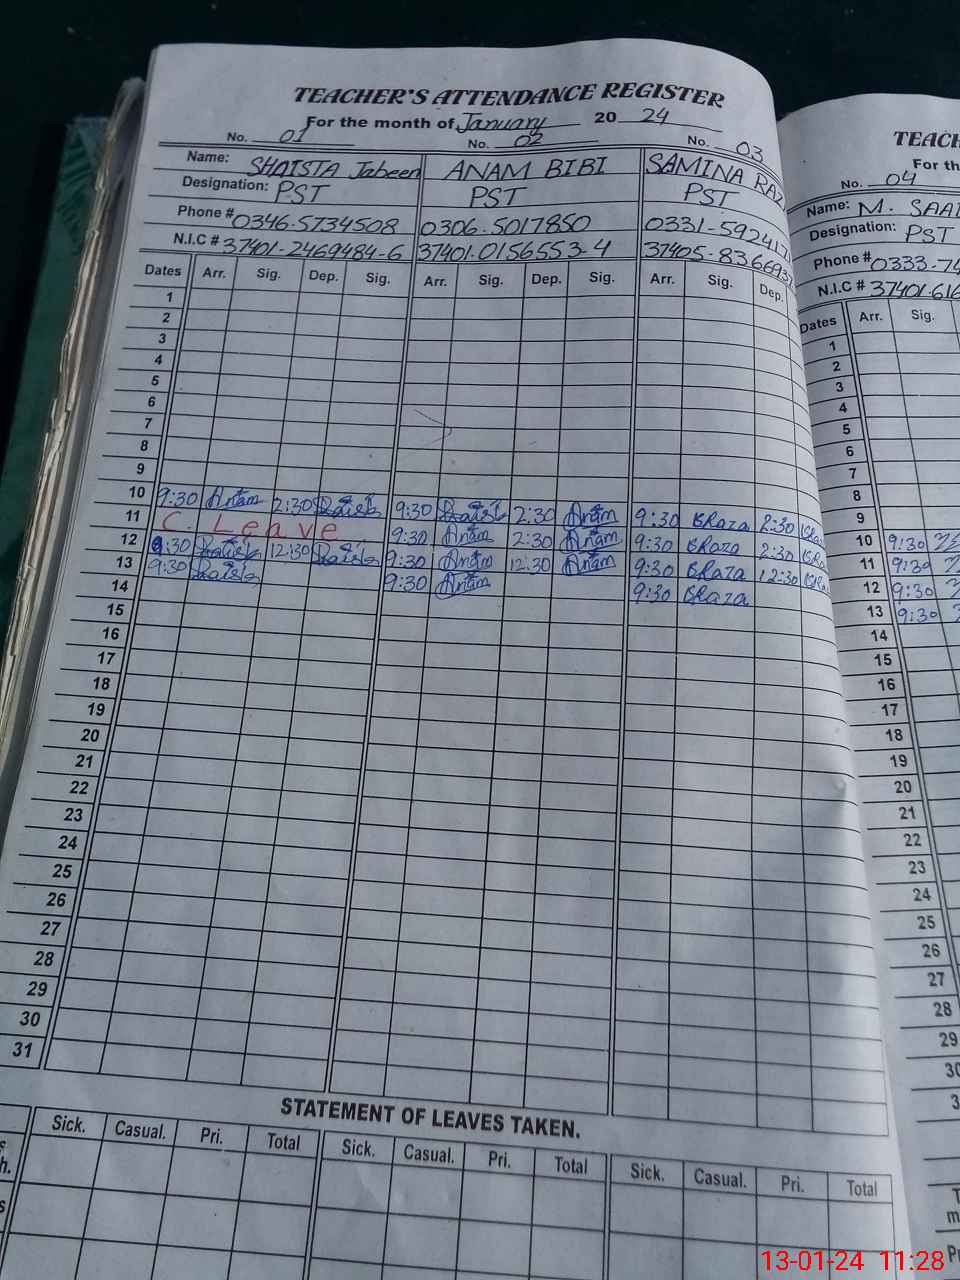 TEACHER'S ATTENDANCE REGISTER
For the month of January 20 24
No. 01 No. 02 No. 03
Name: SHAISTA Jabeen ANAM BIBI SAMINA RAZ
Designation: PST PST PST
Phone # 0346-5734508 0306-5017850 0331-592417
N.I.C # 37401-2469484-6 37401-0156553-4 37405-8366937
Dates Arr. Sig. Dep. Sig. Arr. Sig. Dep. Sig. Arr. Sig. Dep.
1
2
3
4
5
6
7
8
9
10 9:30 Anam 2:30 9:30 2:30 Anam 9:30 SRaza 2:30
11 C. Leave 9:30 Anam 2:30 Anam 9:30 SRaza 2:30
12 9:30 12:30 9:30 Anam 12:30 Anam 9:30 SRaza 12:30
13 9:30 9:30 Anam 9:30 SRaza
14
15
16
17
18
19
20
21
22
23
24
25
26
27
28
29
30
31
STATEMENT OF LEAVES TAKEN.
Sick. Casual. Pri. Total Sick. Casual. Pri. Total Sick. Casual. Pri. Total
TEACH
For th
No. 04
Name: M. SAAD
Designation: PST
Phone # 0333-74
N.I.C # 37401-616
Dates Arr. Sig.
1
2
3
4
5
6
7
8
9
10 9:30
11 9:30
12 9:30
13 9:30
14
15
16
17
18
19
20
21
22
23
24
25
26
27
28
29
30
3
13-01-24 11:28